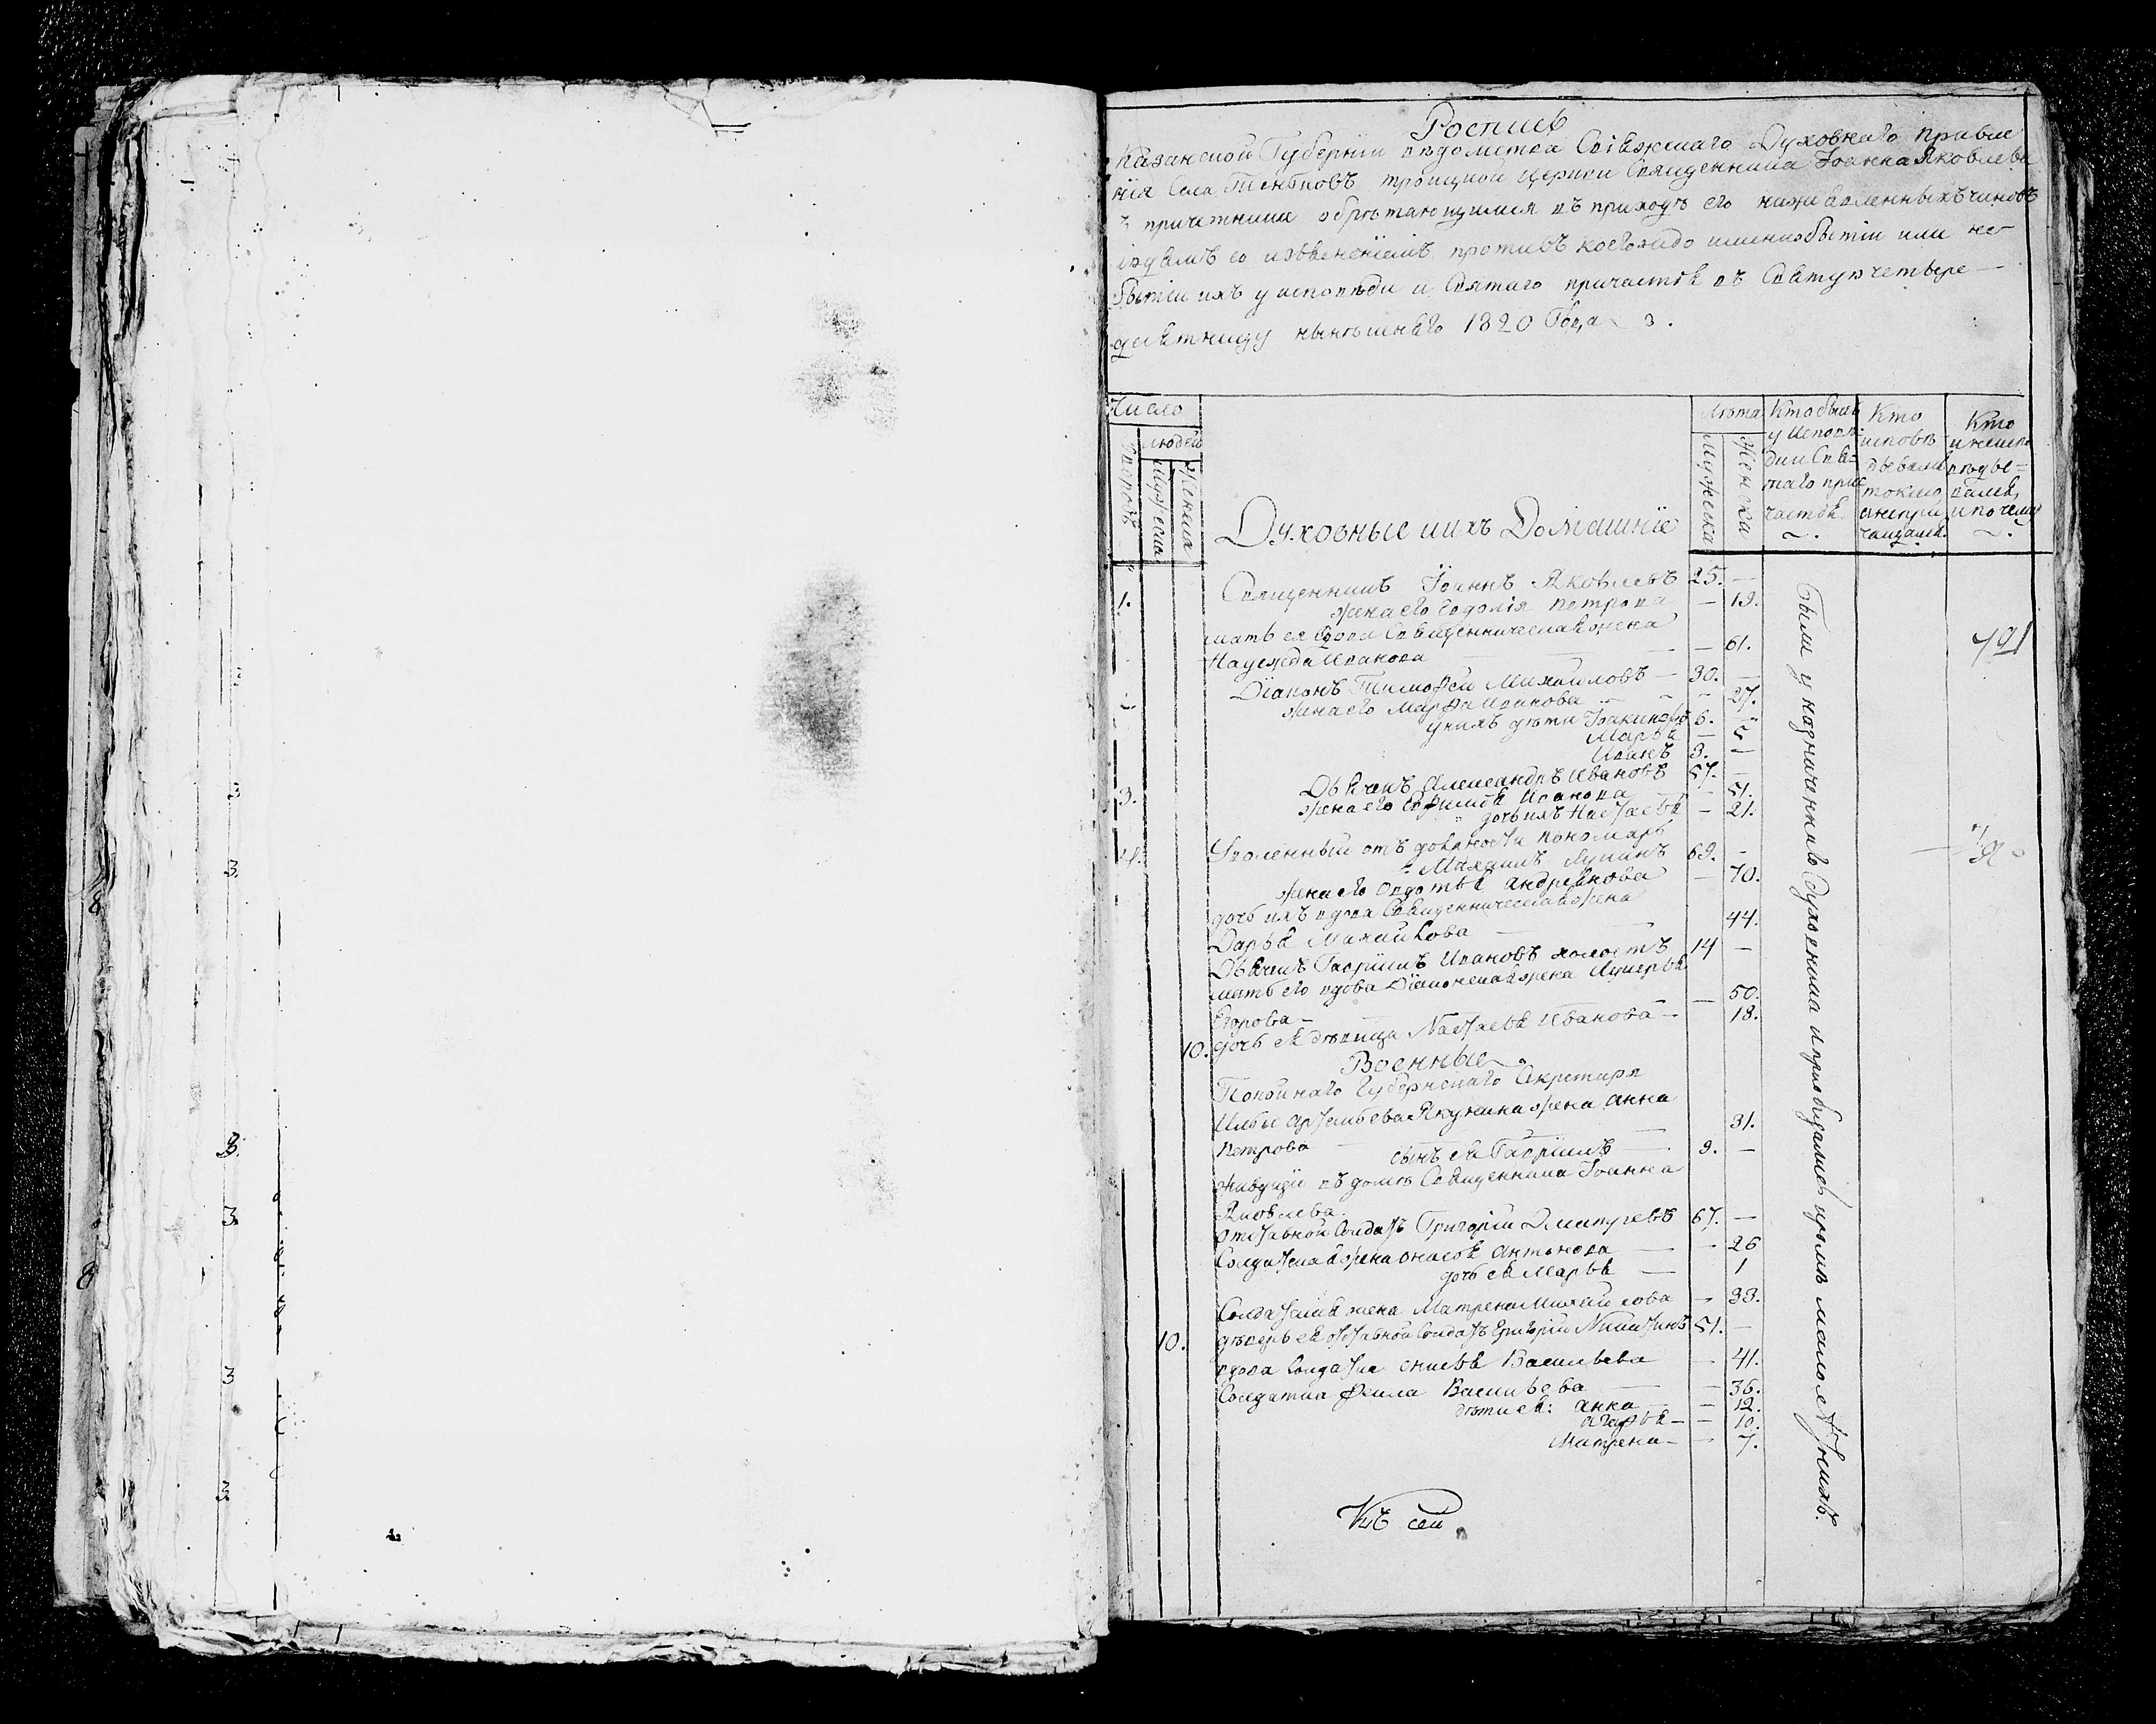 Роспись
Казанской Губернии ведомства Свіяжскаго Духовнаго Правле
нія Села Тенковъ троицкой церкви Священника Іоанна Яковлева
з причетники обретающимися въ приходе его нижеявленныхъ чиновъ
людемъ со изъяснениемъ противъ коегождо имени о бытіи или не
бытіи ихъ у исповѣди и Святаго причастія въ Святую четыре
десятницу нынѣшняго 1820 Года
Число
людей
Дворовъ
Мужеска
Женска
Духовные и ихъ Домашніе
Лѣта
Мужеска
Женска
Кто былъ
у Исповѣ
ди и Свя=
таго при
частія
Кто
исповѣ
дывался
токмо
а не при
чащался.
Кто
и не испо
вѣды=
вался,
и по чему
1. Священникъ Іоаннъ Яковлевъ 25. —
жена его Евдокія Петрова — 19.
мать ея вдова Священническая жена
Надежда Иванова — 61.
Діаконъ Тимофей Михайловъ — 30. —
жена его Марфа Иванова — 27.
у нихъ дѣти Іоакинфъ 6. —
Марья — 5
Иванъ 3. —
3. Дьячекъ Александръ Ивановъ 57. —
жена его Евфимія Иванова — 51.
дочь ихъ Настасья — 21.
4. Уволенный отъ должности пономарь
Михаилъ Лукинъ 69. —
жена его Авдотья Андреянова — 70.
дочь ихъ вдова Священническая жена
Дарья Михайлова — 44.
Дьячекъ Гавріилъ Ивановъ холостъ 14 —
мать его вдова Діаконская жена Лукерья
Егорова — 50.
10. дочь ея дѣвица Настасья Иванова — 18.
Военные
Покойнаго Губернскаго Секретаря
Ильи Артемьева Якунина жена Анна
Петрова 31.
сынъ ея Гавріилъ 9. —
живущіи въ доме Священника Іоанна
Яковлева.
отставной Солдатъ Григорій Дмитріевъ 67. —
Солдатская жена Антонова — 26
дочь ея Марья — 1
Солдатская жена Матрена Михайлова — 33.
10. деверь ея отставной Солдатъ Григорій Никитинъ 51. —
вдова Солдатка Васильева — 41.
Солдатка Фекла Васильева — 36.
дѣти ея: Анна — 12.
Агафья — 10.
Матрена — 7.
были у надничаннаго Священника и пріобщались кромѣ малолѣтнихъ.
Къ сей
791
3
3
3
8
3.
3.
8
3
3